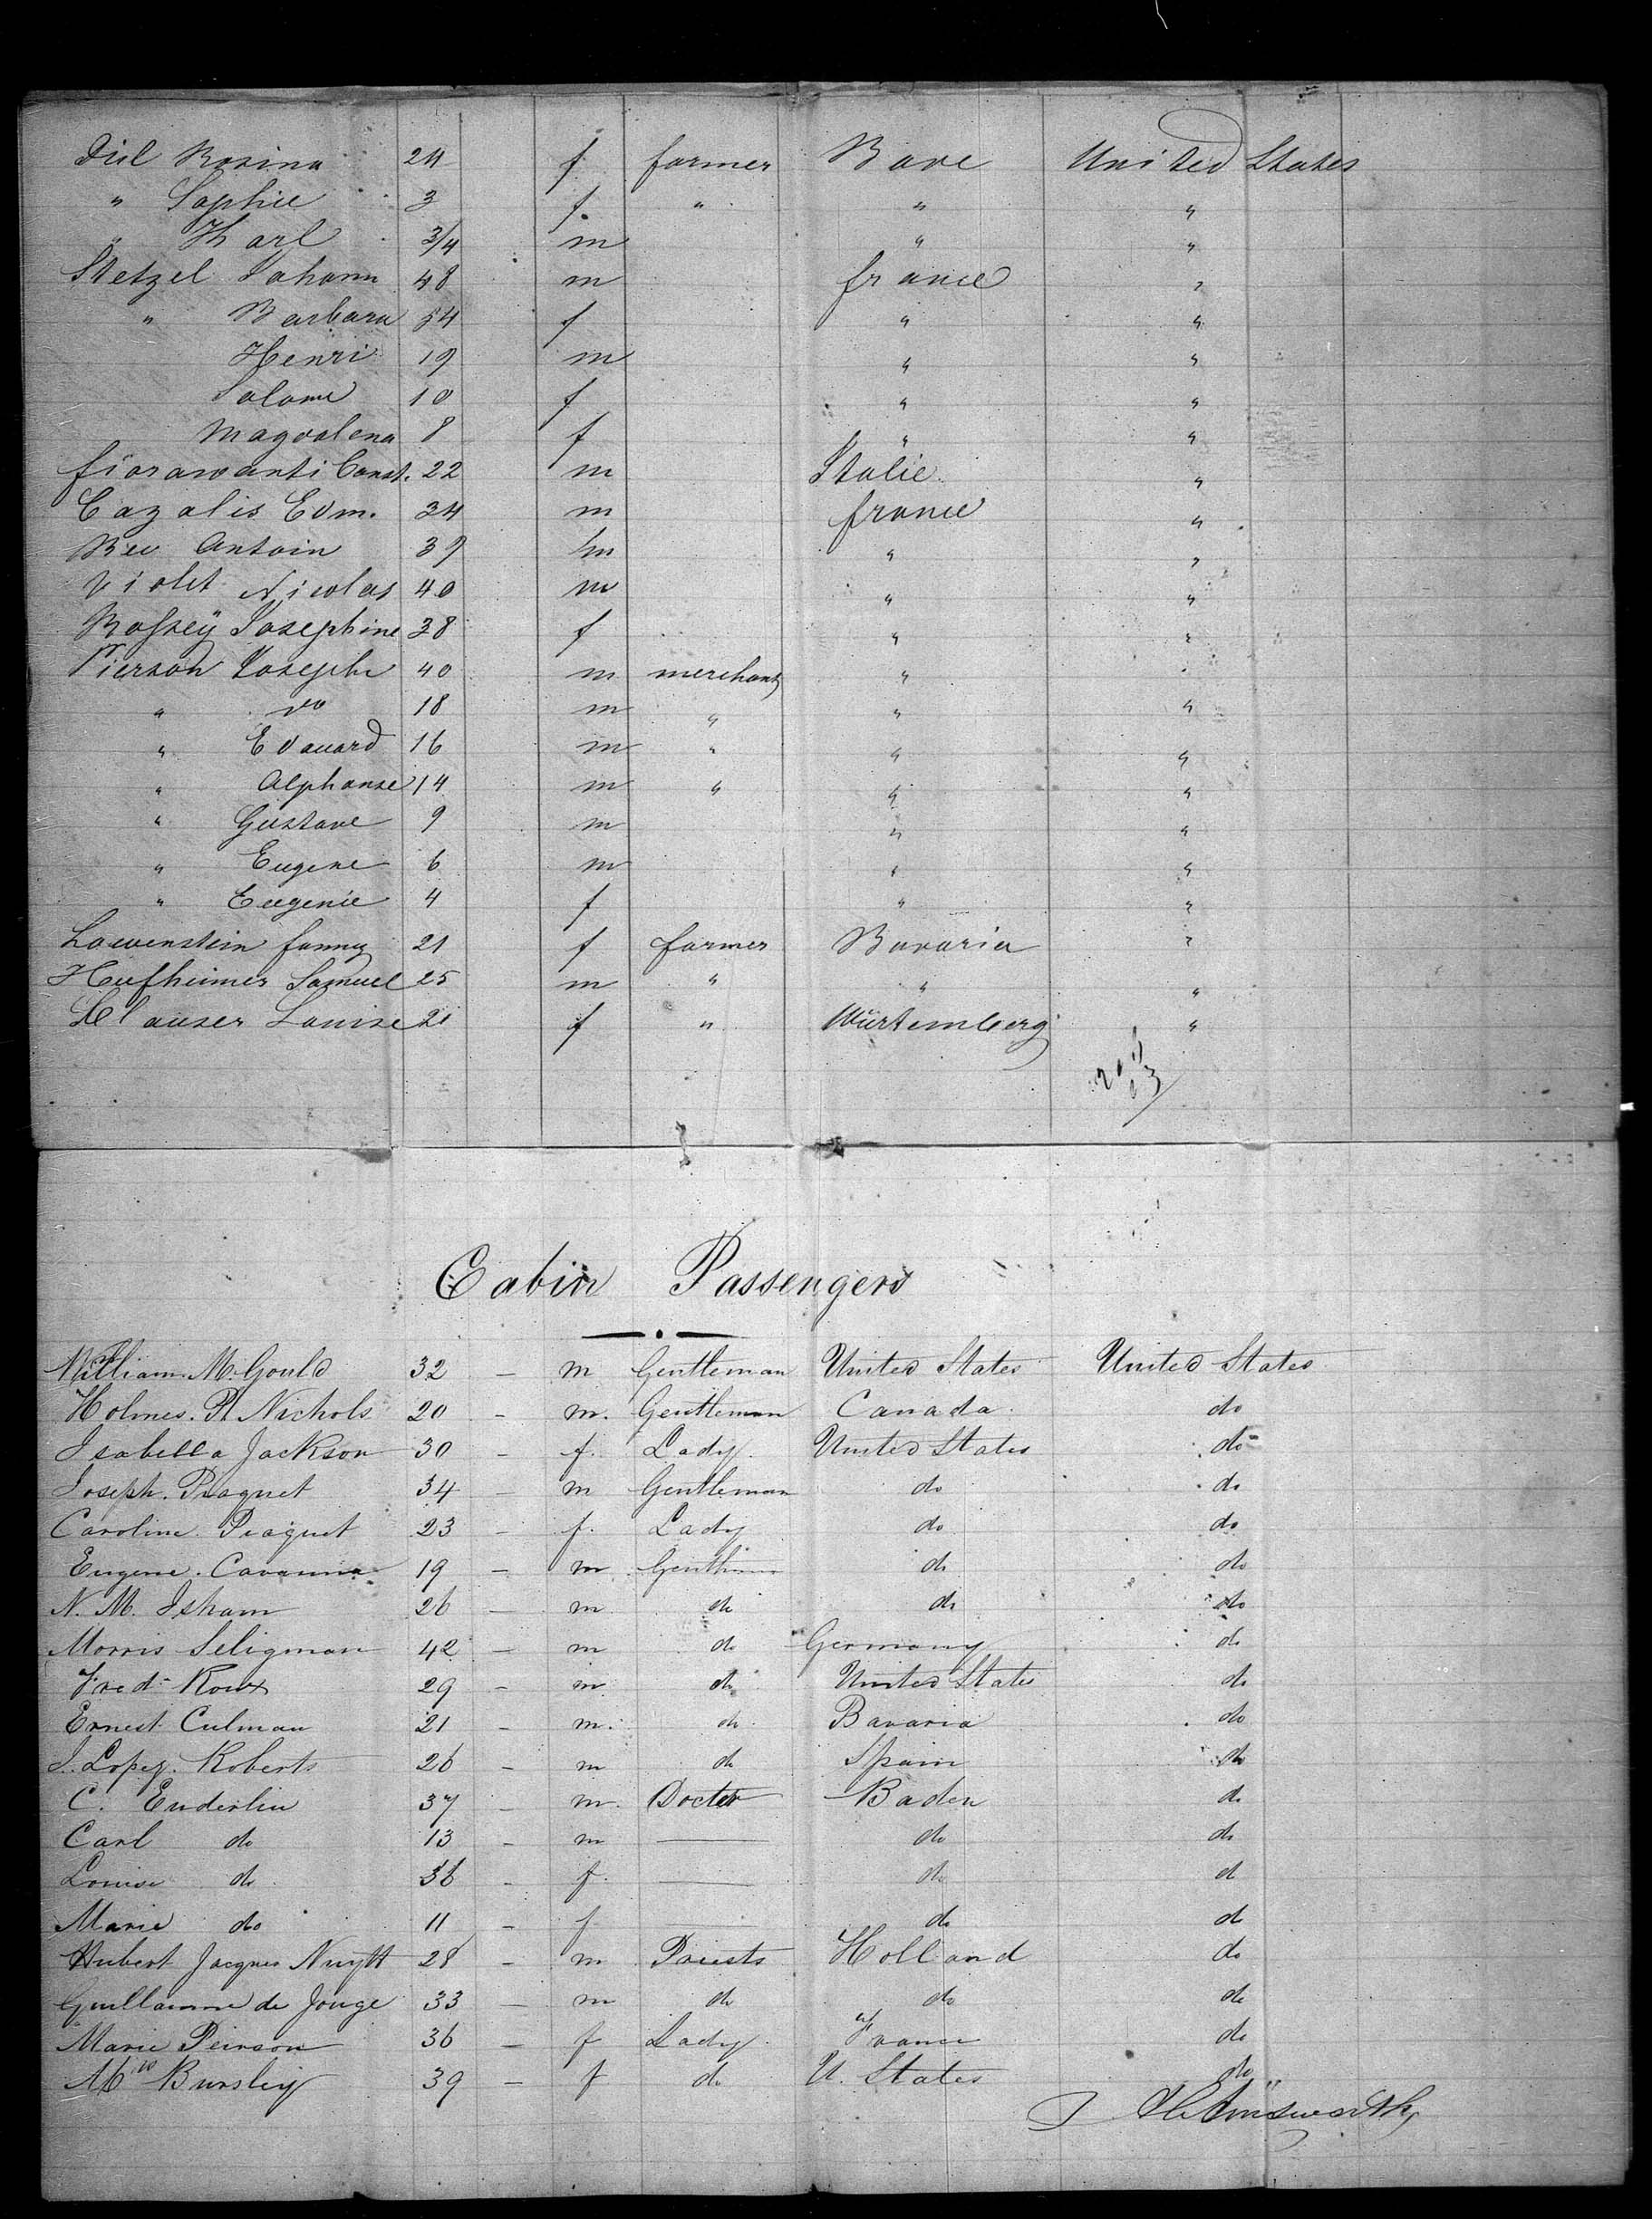 Diel Rosina 24 f farmer Bave United States
" Sophie 3 f. " " "
" Karl 3/4 m " "
Stetzel Johann 48 m france "
" Barbara 54 f " "
Henri 19 m " "
Salome 10 f " "
Magdalena 8 f " "
fiorawanti Const. 22 m Italie "
Cazalis Edm. 34 m france "
Antoin 39 m " "
Violet Nicolas 40 m " "
Josephine 38 f " "
Pierson Joseph 40 m merchant " "
" do 18 m " " "
" Edouard 16 m " " "
" Alphonse 14 m " " "
" Gustave 9 m " "
" Eugene 6 m " "
" Eugenie 4 f " "
Lowenstein fanny 21 f farmer Bavaria "
Hufheimer Samuel 25 m " " "
Klauser Louise 21 f " Würtemberg "
Cabin Passengers
William. M. Gould 32 – m Gentleman United States United States
Holmes. Nichols 20 – m. Gentleman Canada do
Isabella Jackson 30 – f. Lady United States do
Joseph. Piaguet 34 – m Gentleman do do
Caroline Piaguet 23 – f. Lady do do
Eugene. Cavanna 19 – m Gentleman do do
N. M. Isham 26 – m do do do
Morris Seligman 42 – m do Germany do
Fred Roux 29 – m do United States do
Ernest Culman 21 – m. do Bavaria do
J. Lopez. Roberts 26 – m do Spain do
C. Enderlin 37 – m. Doctor Baden do
Carl do 13 – m — do do
Louise do 36 – f. — do do
Marie do 11 – f — do do
Hubert Jacques Nuytt 28 – m Priests Holland do
Guillaume de Jonge 33 – m do do do
Marie Peirson 36 – f Lady France do
Mrs Bursley 39 – f do U. States do